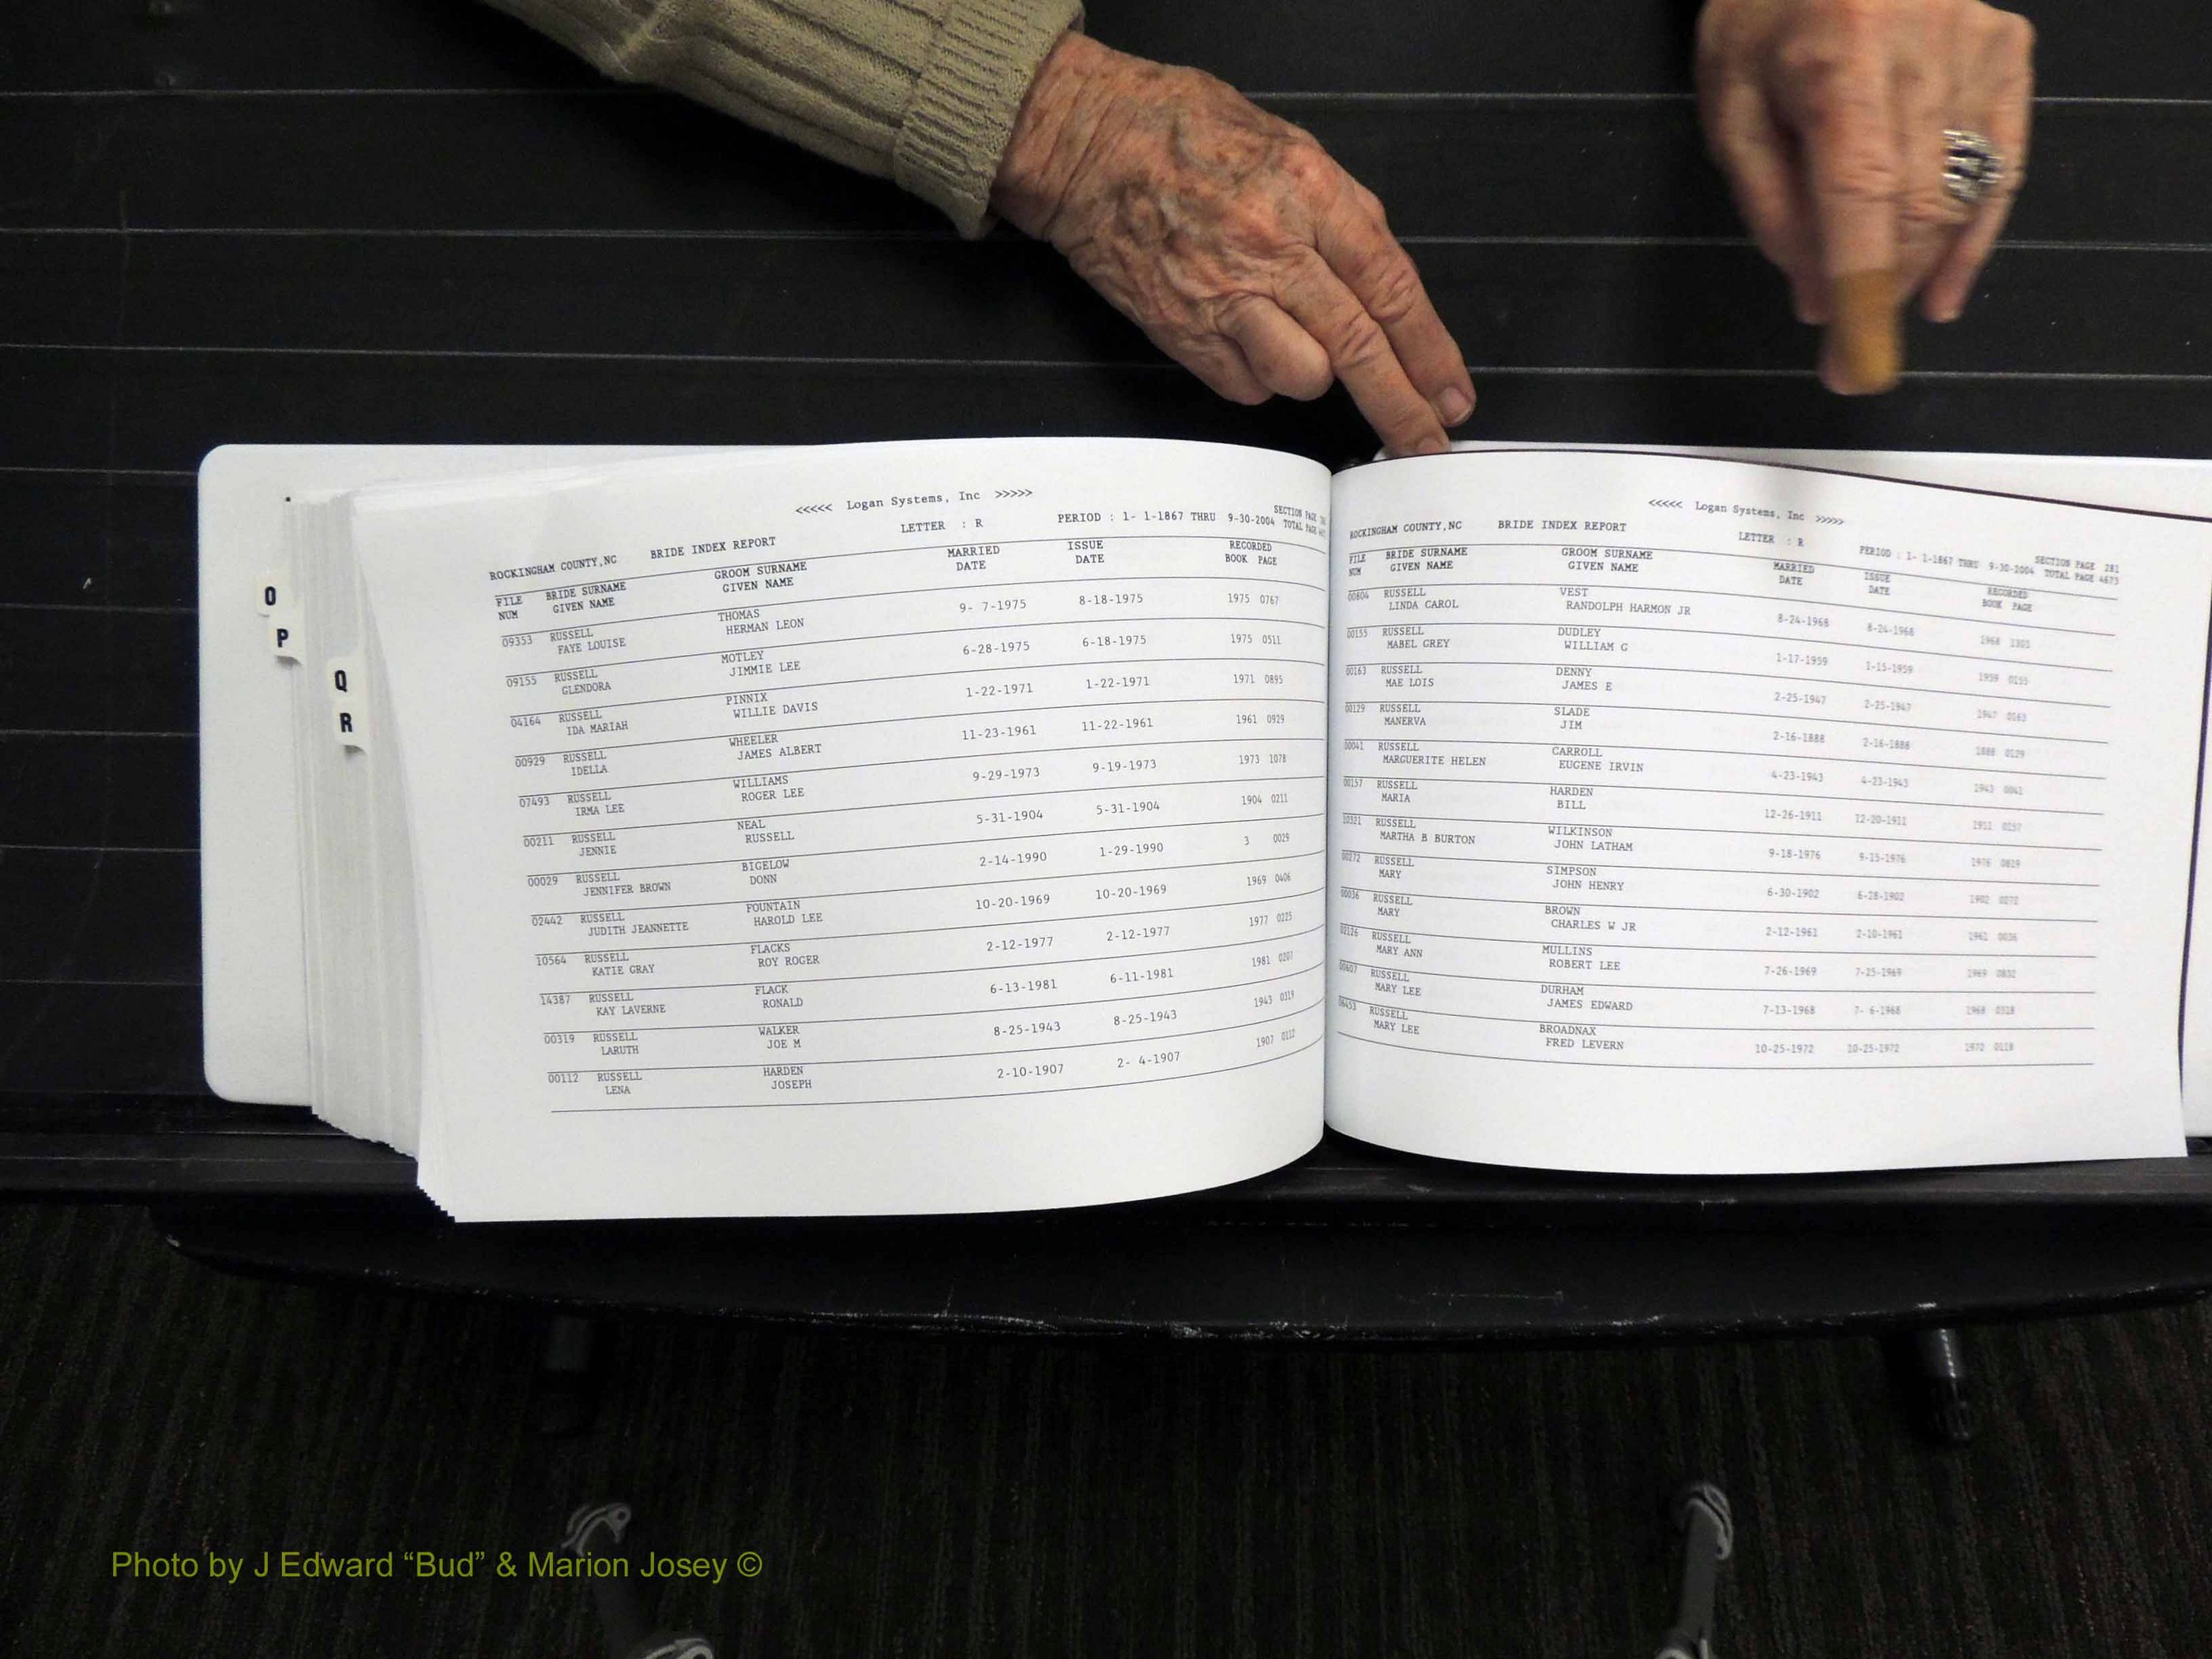 <<<<< Logan Systems, Inc >>>>>
ROCKINGHAM COUNTY,NC BRIDE INDEX REPORT LETTER : R PERIOD : 1- 1-1867 THRU 9-30-2004 SECTION PAGE
TOTAL PAGE
FILE BRIDE SURNAME GROOM SURNAME MARRIED ISSUE RECORDED
NUM GIVEN NAME GIVEN NAME DATE DATE BOOK PAGE
09353 RUSSELL THOMAS 9- 7-1975 8-18-1975 1975 0767
FAYE LOUISE HERMAN LEON
09155 RUSSELL MOTLEY 6-28-1975 6-18-1975 1975 0511
GLENDORA JIMMIE LEE
04164 RUSSELL PINNIX 1-22-1971 1-22-1971 1971 0895
IDA MARIAH WILLIE DAVIS
00929 RUSSELL WHEELER 11-23-1961 11-22-1961 1961 0929
IDELLA JAMES ALBERT
07493 RUSSELL WILLIAMS 9-29-1973 9-19-1973 1973 1078
IRMA LEE ROGER LEE
00211 RUSSELL NEAL 5-31-1904 5-31-1904 1904 0211
JENNIE RUSSELL
00029 RUSSELL BIGELOW 2-14-1990 1-29-1990 3 0029
JENNIFER BROWN DONN
02442 RUSSELL FOUNTAIN 10-20-1969 10-20-1969 1969 0406
JUDITH JEANNETTE HAROLD LEE
10564 RUSSELL FLACKS 2-12-1977 2-12-1977 1977 0225
KATIE GRAY ROY ROGER
14387 RUSSELL FLACK 6-13-1981 6-11-1981 1981 0207
KAY LAVERNE RONALD
00319 RUSSELL WALKER 8-25-1943 8-25-1943 1943 0319
LARUTH JOE M
00112 RUSSELL HARDEN 2-10-1907 2- 4-1907 1907 0112
LENA JOSEPH
O
P
Q
R
<<<<< Logan Systems, Inc >>>>>
ROCKINGHAM COUNTY,NC BRIDE INDEX REPORT LETTER : R PERIOD : 1- 1-1867 THRU 9-30-2004 SECTION PAGE 281
TOTAL PAGE 4673
FILE BRIDE SURNAME GROOM SURNAME MARRIED ISSUE RECORDED
NUM GIVEN NAME GIVEN NAME DATE DATE BOOK PAGE
00804 RUSSELL VEST 8-24-1968 8-24-1968 1968 1305
LINDA CAROL RANDOLPH HARMON JR
00155 RUSSELL DUDLEY 1-17-1959 1-15-1959 1959 0155
MABEL GREY WILLIAM G
00163 RUSSELL DENNY 2-25-1947 2-25-1947 1947 0163
MAE LOIS JAMES E
00129 RUSSELL SLADE 2-16-1888 2-16-1888 1888 0129
MANERVA JIM
00041 RUSSELL CARROLL 4-23-1943 4-23-1943 1943 0041
MARGUERITE HELEN EUGENE IRVIN
00157 RUSSELL HARDEN 12-26-1911 12-20-1911 1911 0157
MARIA BILL
10321 RUSSELL WILKINSON 9-18-1976 9-15-1976 1976 0829
MARTHA B BURTON JOHN LATHAM
00272 RUSSELL SIMPSON 6-30-1902 6-28-1902 1902 0272
MARY JOHN HENRY
00036 RUSSELL BROWN 2-12-1961 2-10-1961 1961 0036
MARY CHARLES W JR
02126 RUSSELL MULLINS 7-26-1969 7-25-1969 1969
MARY ANN ROBERT LEE
RUSSELL DURHAM 7-13-1968 7- 6-1968 1968
MARY LEE JAMES EDWARD
RUSSELL BROADNAX 10-25-1972 10-25-1972 1972
MARY LEE FRED LEVERN
Photo by J Edward “Bud” & Marion Josey ©